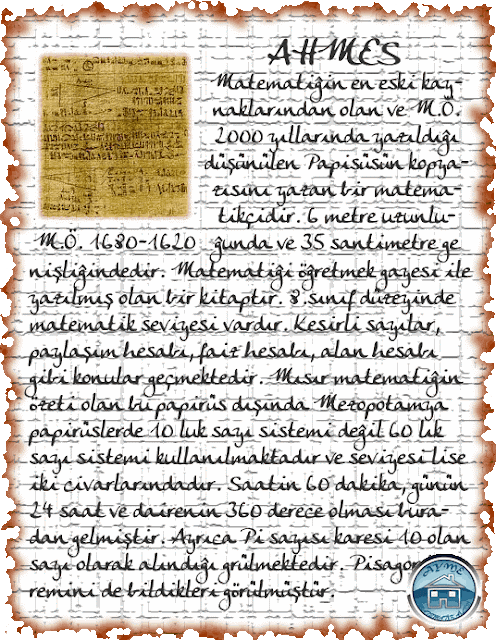 AHMES
Matematiğin en eski kay-
naklarından olan ve M.Ö.
2000 yıllarında yazıldığı
düşünülen Papisüsün kopya-
zisını yazan bir matema-
tikçidir. 6 metre uzunlu-
M.Ö. 1680-1620 ğunda ve 35 santimetre ge
nişliğindedir. Matematiği öğretmek gayesi ile
yazılmış olan bir kitaptır. 8.sınıf düzeyinde
matematik seviyesi vardır. Kesirli sayılar,
paylaşım hesabı, faiz hesabı, alan hesabı
gibi konular geçmektedir. Mısır matematiğin
özeti olan bu papirüs dışında Mezopotamya
papirüslerde 10 luk sayı sistemi değil 60 lık
sayı sistemi kullanılmaktadır ve seviyesi lise
iki civarlarındadır. Saatin 60 dakika, günün
24 saat ve dairenin 360 derece olması bura-
dan gelmiştir. Ayrıca Pi sayısı karesi 10 olan
sayı olarak alındığı grülmektedir. Pisagor
remini de bildikleri görülmüştür.